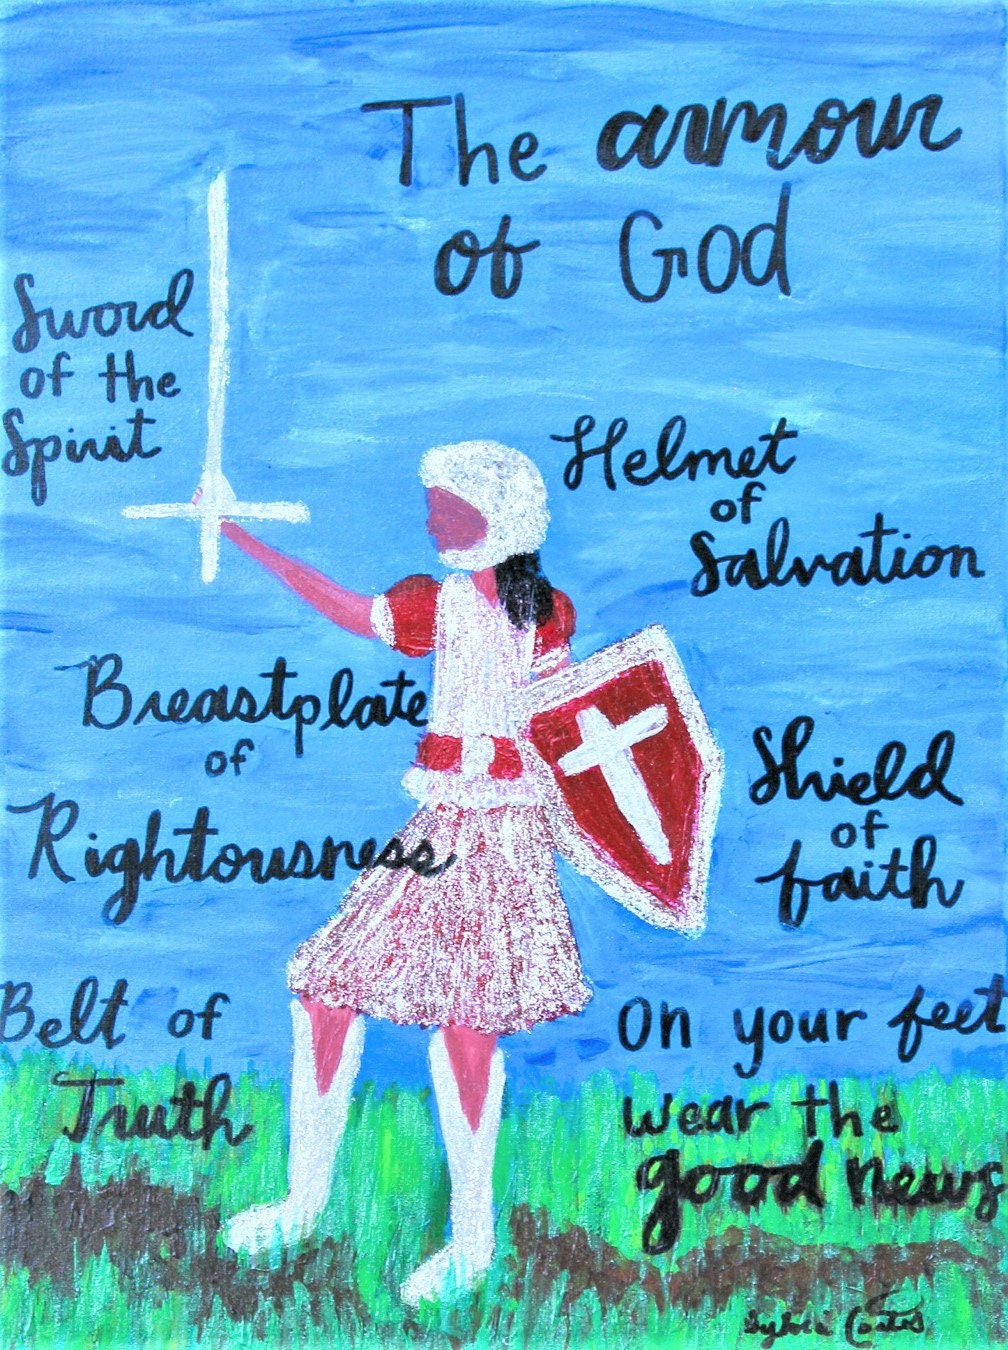 The armour
of God
Sword
of the
Spirit
Helmet
of
Salvation
Breastplate
of
Rightousness
Shield
of
faith
Belt of
Truth
On your feet
wear the
good news
Sylvia Coates